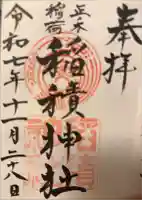 奉拝
正ノ木
稲荷
稲積神社
令和七年十二月二十八日